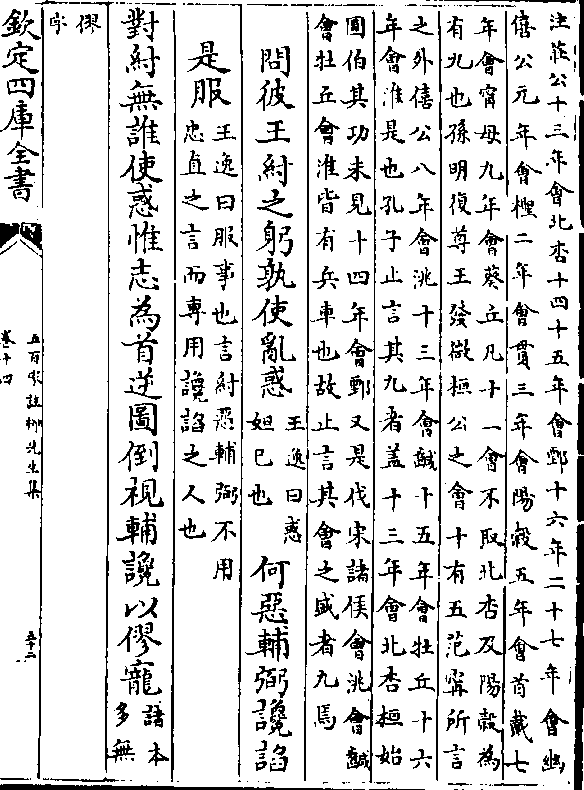 注莊公十三年會北杏十四十五年會鄄十六年二十七年會幽
僖公元年會檉二年會貫三年會陽榖五年會首戴七
年會甯母九年會葵丘凡十一會不取北杏及陽榖為
有九也孫明復尊王發微桓公之會十有五范甯所言
之外僖公八年會洮十三年會鹹十五年會牡丘十六
年會淮是也孔子止言其九者盖十三年會北杏桓始
圖伯其功未見十四年會鄄又是伐宋諸侯會洮會鹹
會牡丘會淮皆有兵車也故止言其會之盛者九焉
問彼王紂之躬孰使亂惑王逸曰惑
妲已也何惡輔弼讒諂
是服王逸曰服事也言紂惡輔弼不用
忠直之言而專用讒諂之人也
對紂無誰使惑惟志為首逆圖倒視輔讒以僇寵諸本
多無
僇
字
欽定四庫全書
五百家註柳先生集
卷十四
五十二